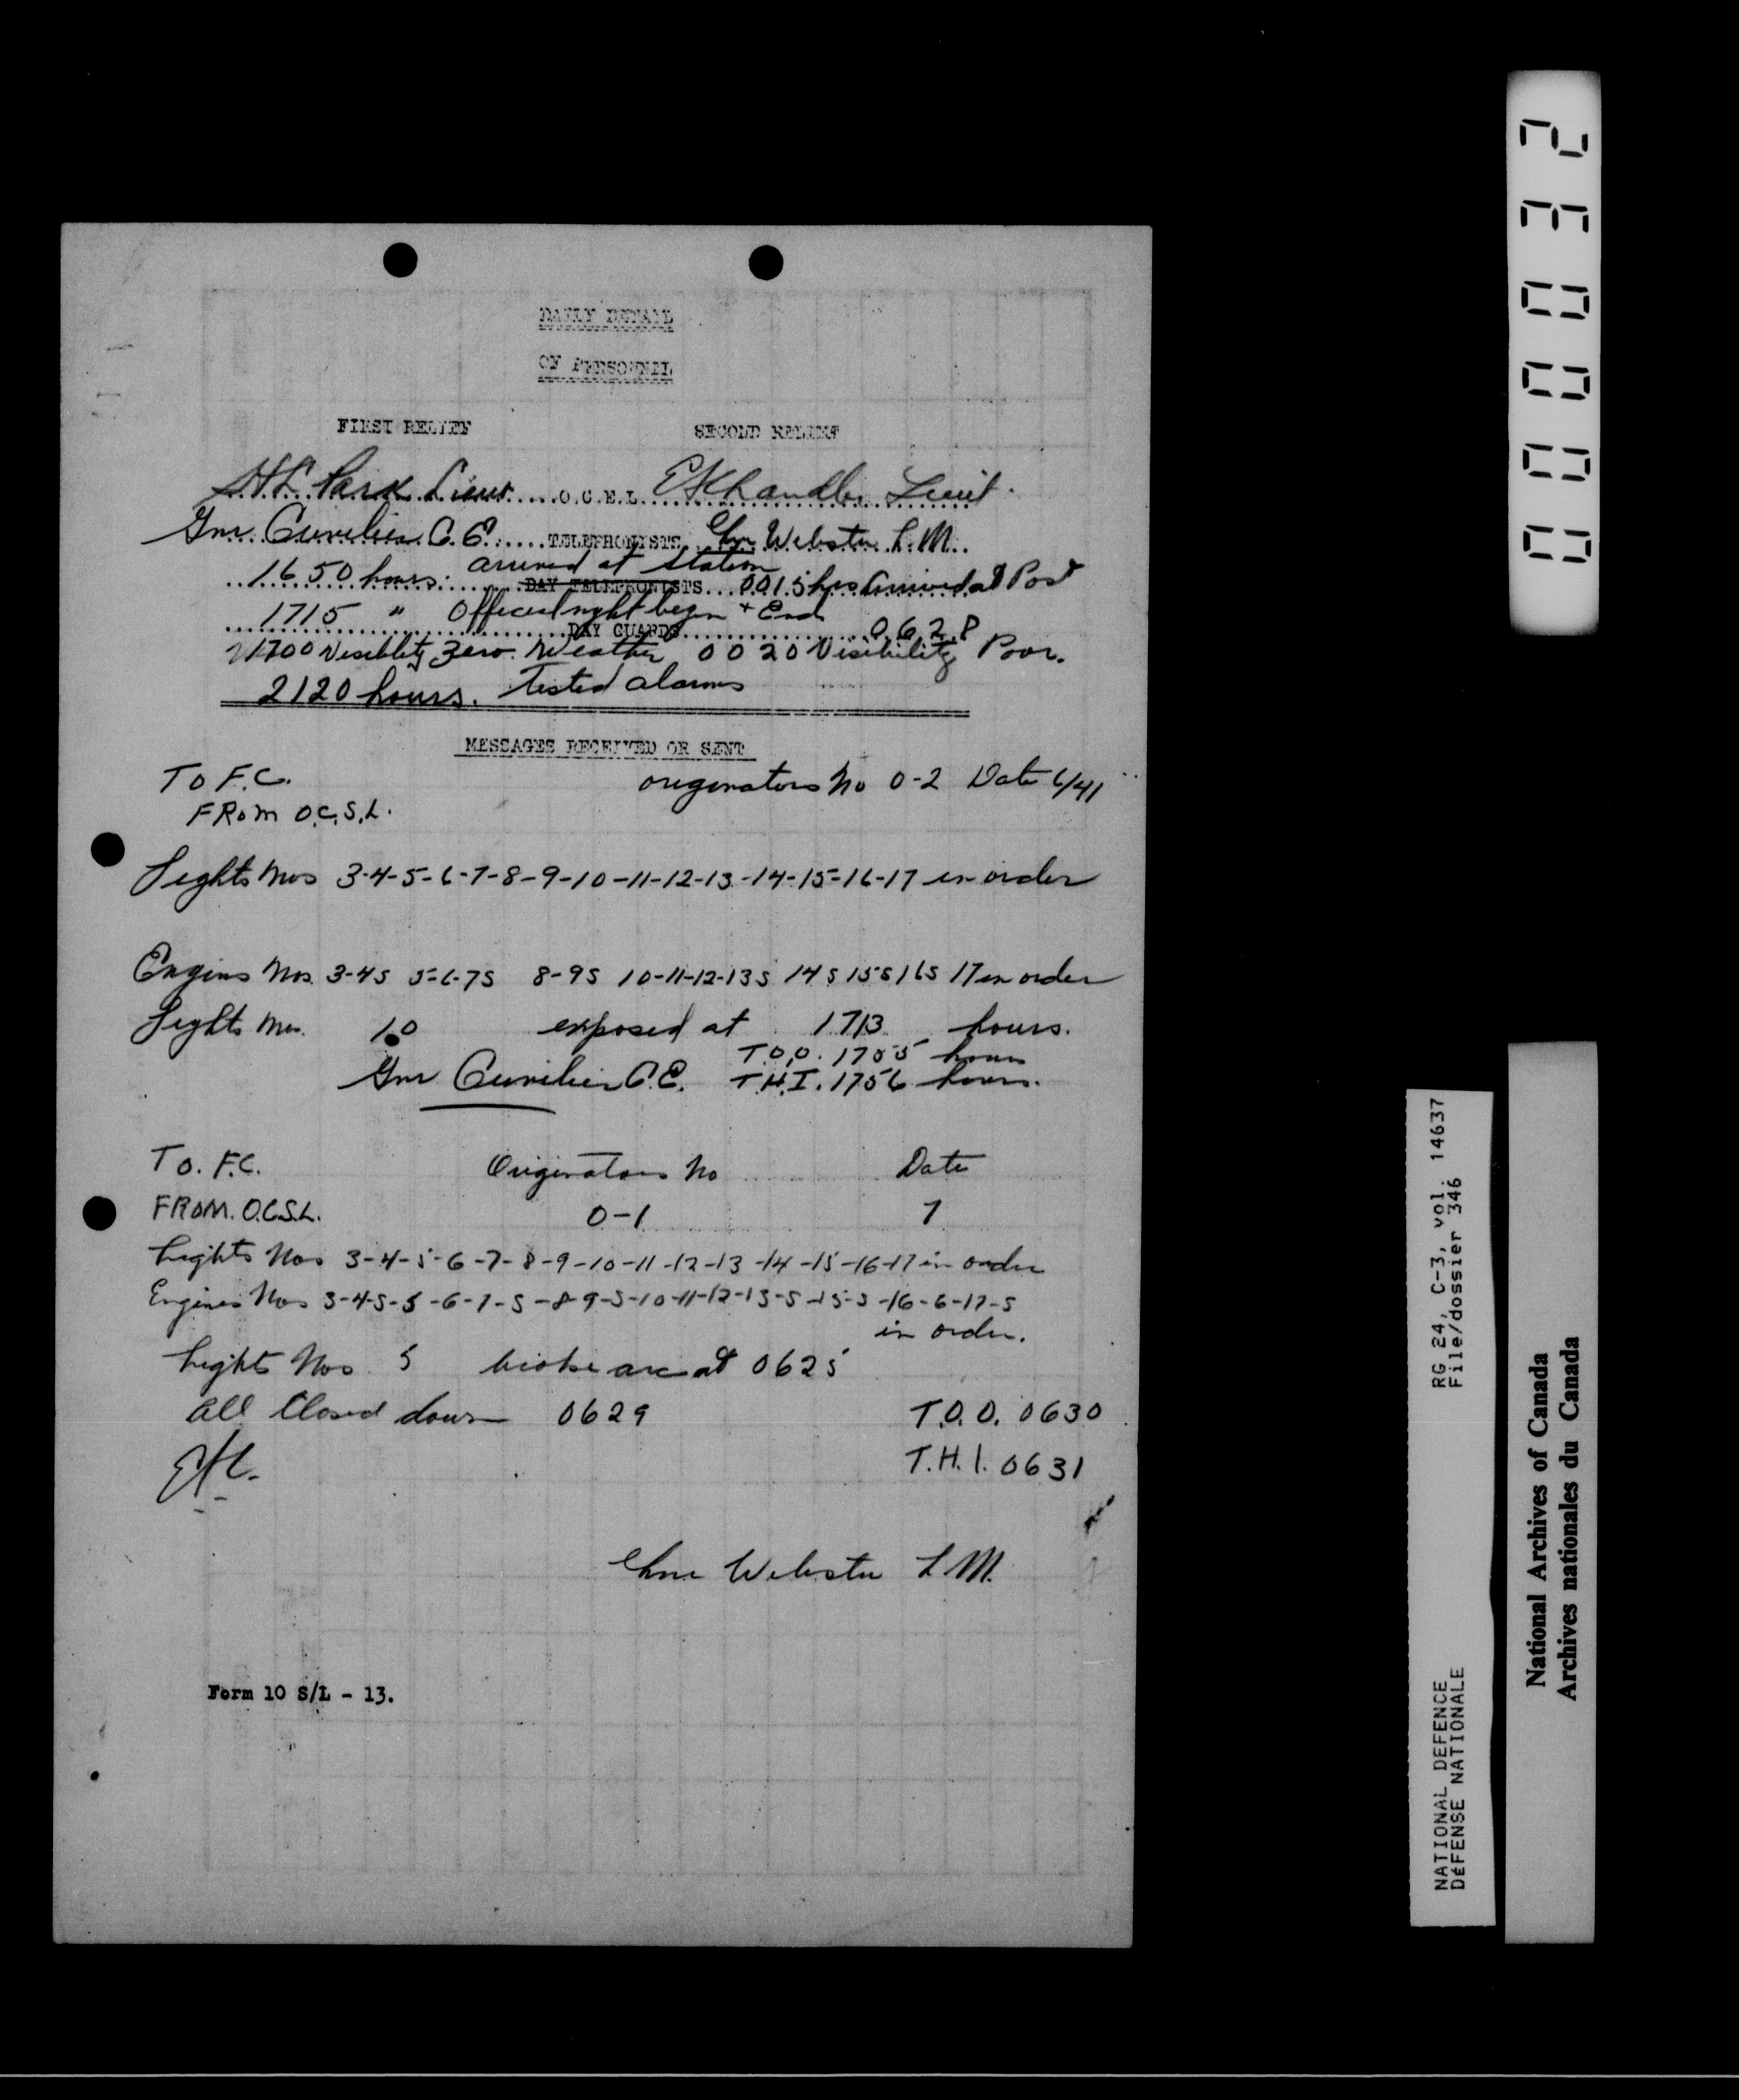 DAILY DETAIL
OF PERSONNEL
FIRST RELIEF SECOND RELIEF
H.L. Park Lieut. O.C.E.L. E K Chandler Lieut.
Gnr C.E. TELEPHONISTS Gnr Webster L.M.
1650 hours. arrived at station DAY TELEPHONISTS 0015 hrs Arrived at Post
1715 " Official night begin + End DAY GUARDS 0628
1700 Visiblity Zero. Weather 0020 Visibility Poor.
2120 hours. Tested alarms
MESSAGES RECEIVED OR SENT
To F.C. originators No 0-2 Date 6/41
FROM O.C.S.L.
Lights Nos 3-4-5-6-7-8-9-10-11-12-13-14-15-16-17 in order
Engins Nos. 3-4S 5-6-7S 8-9S 10-11-12-13S 14S 15S 16S 17 in order
Lights Nos. 10 exposed at 1713 hours.
T.O.O. 1755 hours
Gnr C.E. T.H.I. 1756 hours.
To. F.C. Originators No Date
FROM. O.C.S.L. 0-1 7
Lights Nos 3-4-5-6-7-8-9-10-11-12-13-14-15-16-17 in order
Engines Nos 3-4-S-5-6-7-S-8-9-S-10-11-12-13-S-15-S-16-6-17-S
in order.
Lights Nos 5 broke arc at 0625
All Closed down 0629 T.O.O. 0630
EKC. T.H.I. 0631
Gnr Webster L.M.
Form 10 S/L - 13.
000032
RG 24, C-3, vol. 14637
File/dossier 346
NATIONAL DEFENCE
DÉFENSE NATIONALE
National Archives of Canada
Archives nationales du Canada